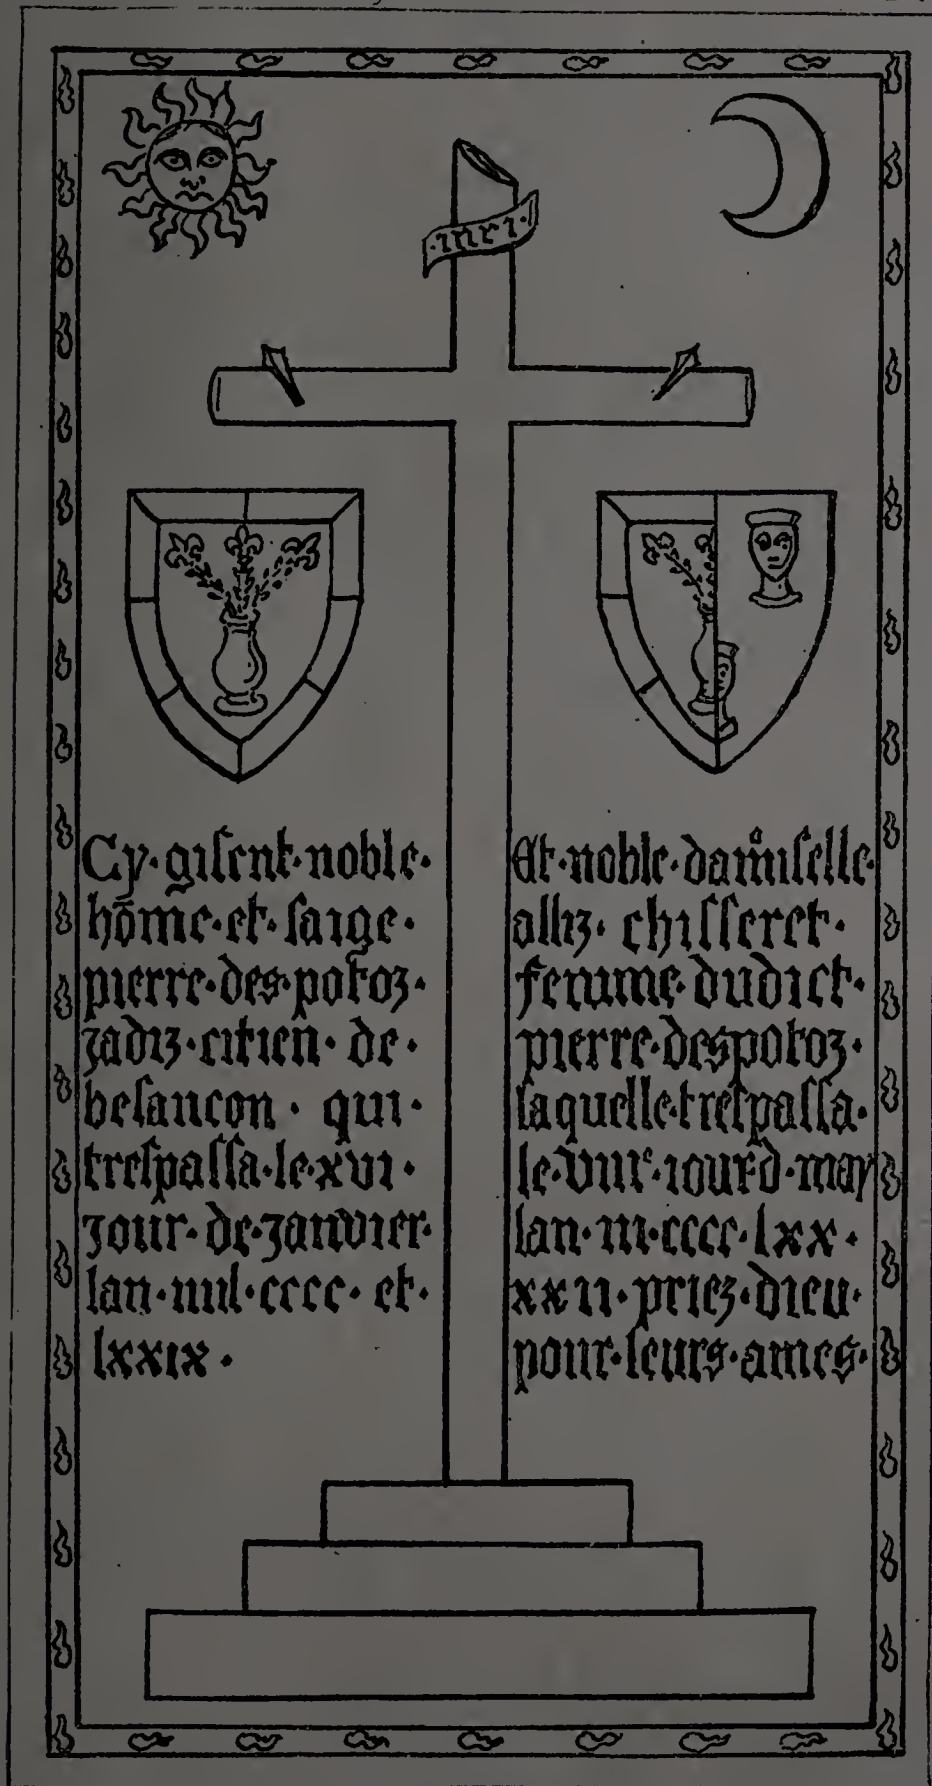 ·inri·
Cy·gisent·noble·
hōme·et·saige·
pierre·des·potoz·
jadiz·citien·de·
besancon·qui·
trespassa·le·xvi·
jour·de·janvier·
lan·mil·cccc·et·
lxxix·
Et·noble·dam̊iselle·
alliz·chisseret·
femme·dudict·
pierre·despotoz·
laquelle·trespassa·
le·viiie·iour·d·may
lan·m·cccc·lxx·
xxii·priez·dieu·
pour·leurs·ames·